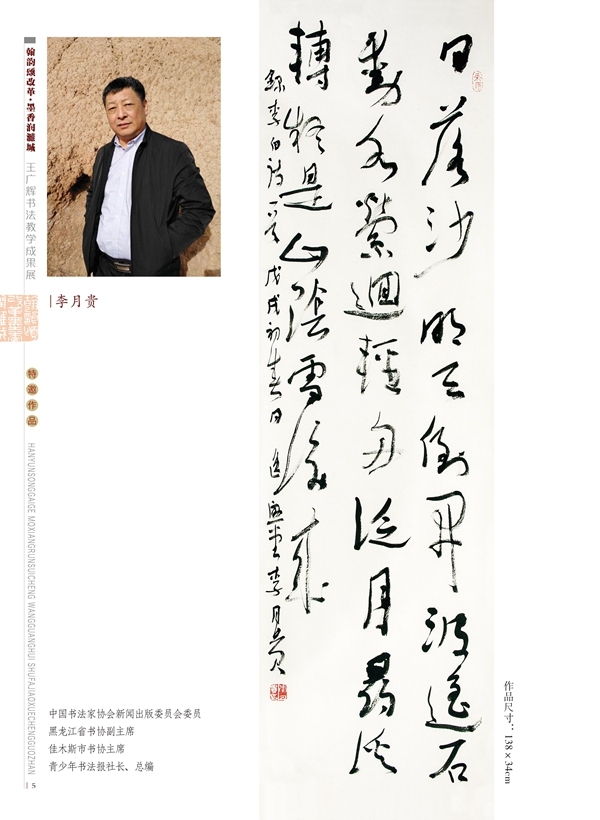 翰韵颂改革·墨香润濉城
王广辉书法教学成果展
李月贵
特邀作品
HANYUNSONGGAIGE MOXIANGRUNSUICHENG WANGGUANGHUI SHUFAJIAOXUECHENGGUOZHAN
5
中国书法家协会新闻出版委员会委员
黑龙江省书协副主席
佳木斯市书协主席
青少年书法报社长、总编
日落沙明天倒開波遥石
動水縈迴輕舟泛月尋溪
轉疑是山陰雪後來
錄李白詩一首戊戌初春月李月貴
作品尺寸：138×34cm